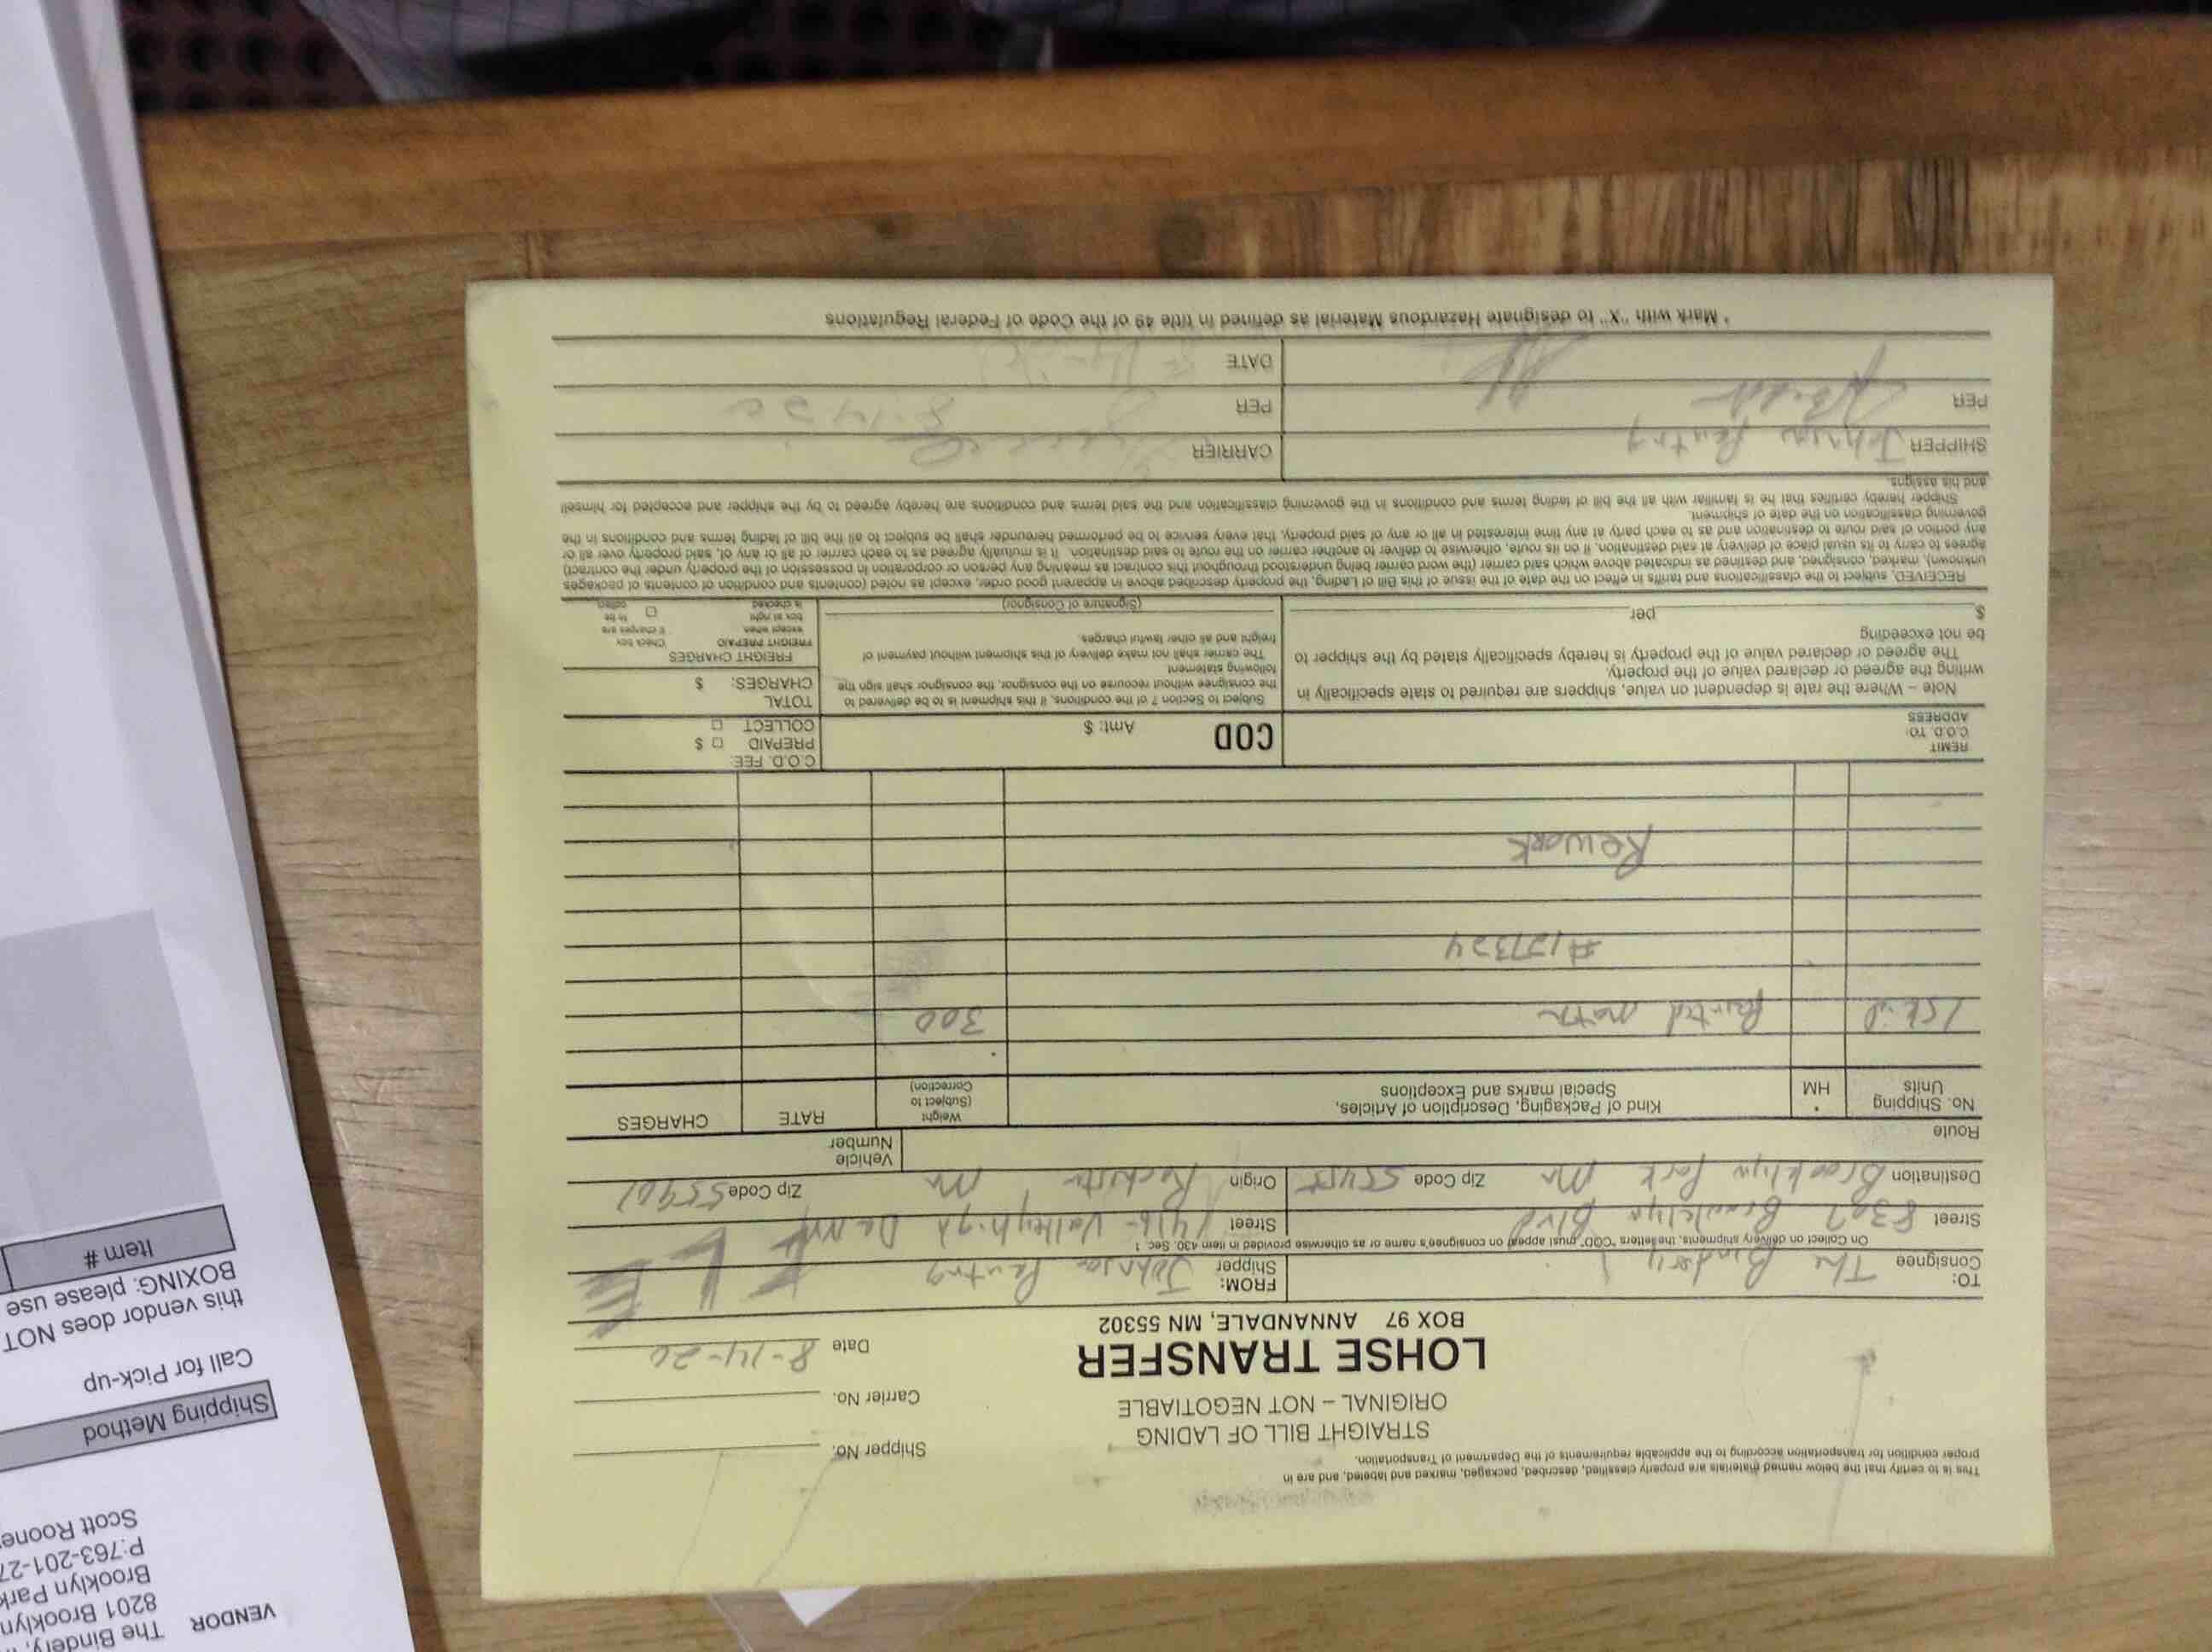 This is to certify that the below named materials are properly classified, described, packaged, marked and labeled, and are in
proper condition for transportation according to the applicable requirements of the Department of Transportation.
STRAIGHT BILL OF LADING
ORIGINAL – NOT NEGOTIABLE
Shipper No.
Carrier No.
LOHSE TRANSFER
BOX 97 ANNANDALE, MN 55302
Date 8-14-20
TO:
Consignee The Bindery
FROM:
Shipper Johnson Printing
On Collect on delivery shipments, the letters "COD" must appear on consignee's name or as otherwise provided in item 430, Sec. 1
Street Brooklyn Blvd
Street 1416 Valleyhigh Dr NW
Destination Brooklyn Park Mn Zip Code
Origin Rochester Mn Zip Code 55901
Route
Vehicle
Number
No. Shipping
Units
*
HM
Kind of Packaging, Description of Articles,
Special marks and Exceptions
Weight
(Subject to
Correction)
RATE
CHARGES
1 skid Printed matter 300
#127324
Rework
REMIT
C.O.D. TO:
ADDRESS
COD Amt: $
C.O.D. FEE:
PREPAID $
COLLECT
Note – Where the rate is dependent on value, shippers are required to state specifically in
writing the agreed or declared value of the property.
The agreed or declared value of the property is hereby specifically stated by the shipper to
be not exceeding
$ per
Subject to Section 7 of the conditions, if this shipment is to be delivered to
the consignee without recourse on the consignor, the consignor shall sign the
following statement
The carrier shall not make delivery of this shipment without payment of
freight and all other lawful charges.
(Signature of Consignor)
TOTAL
CHARGES: $
FREIGHT CHARGES
FREIGHT PREPAID
except when
box at right
is checked
Check box
if charges are
to be
collect
RECEIVED, subject to the classifications and tariffs in effect on the date of the issue of this Bill of Lading, the property described above in apparent good order, except as noted (contents and condition of contents of packages
unknown), marked, consigned, and destined as indicated above which said carrier (the word carrier being understood throughout this contract as meaning any person or corporation in possession of the property under the contract)
agrees to carry to its usual place of delivery at said destination, if on its route, otherwise to deliver to another carrier on the route to said destination. It is mutually agreed as to each carrier of all or any of, said property over all or
any portion of said route to destination and as to each party at any time interested in all or any of said property, that every service to be performed hereunder shall be subject to all the bill of lading terms and conditions in the
governing classification on the date of shipment.
Shipper hereby certifies that he is familiar with all the bill of lading terms and conditions in the governing classification and the said terms and conditions are hereby agreed to by the shipper and accepted for himself
and his assigns.
SHIPPER Johnson Printing
CARRIER
PER
PER 8-14-20
DATE
* Mark with "X" to designate Hazardous Material as defined in title 49 of the Code of Federal Regulations
VENDOR
The Bindery,
8201 Brooklyn
Brooklyn Park
P:763-201-27
Scott Roone
Shipping Method
Call for Pick-up
this vendor does NOT
BOXING: please use
Item #